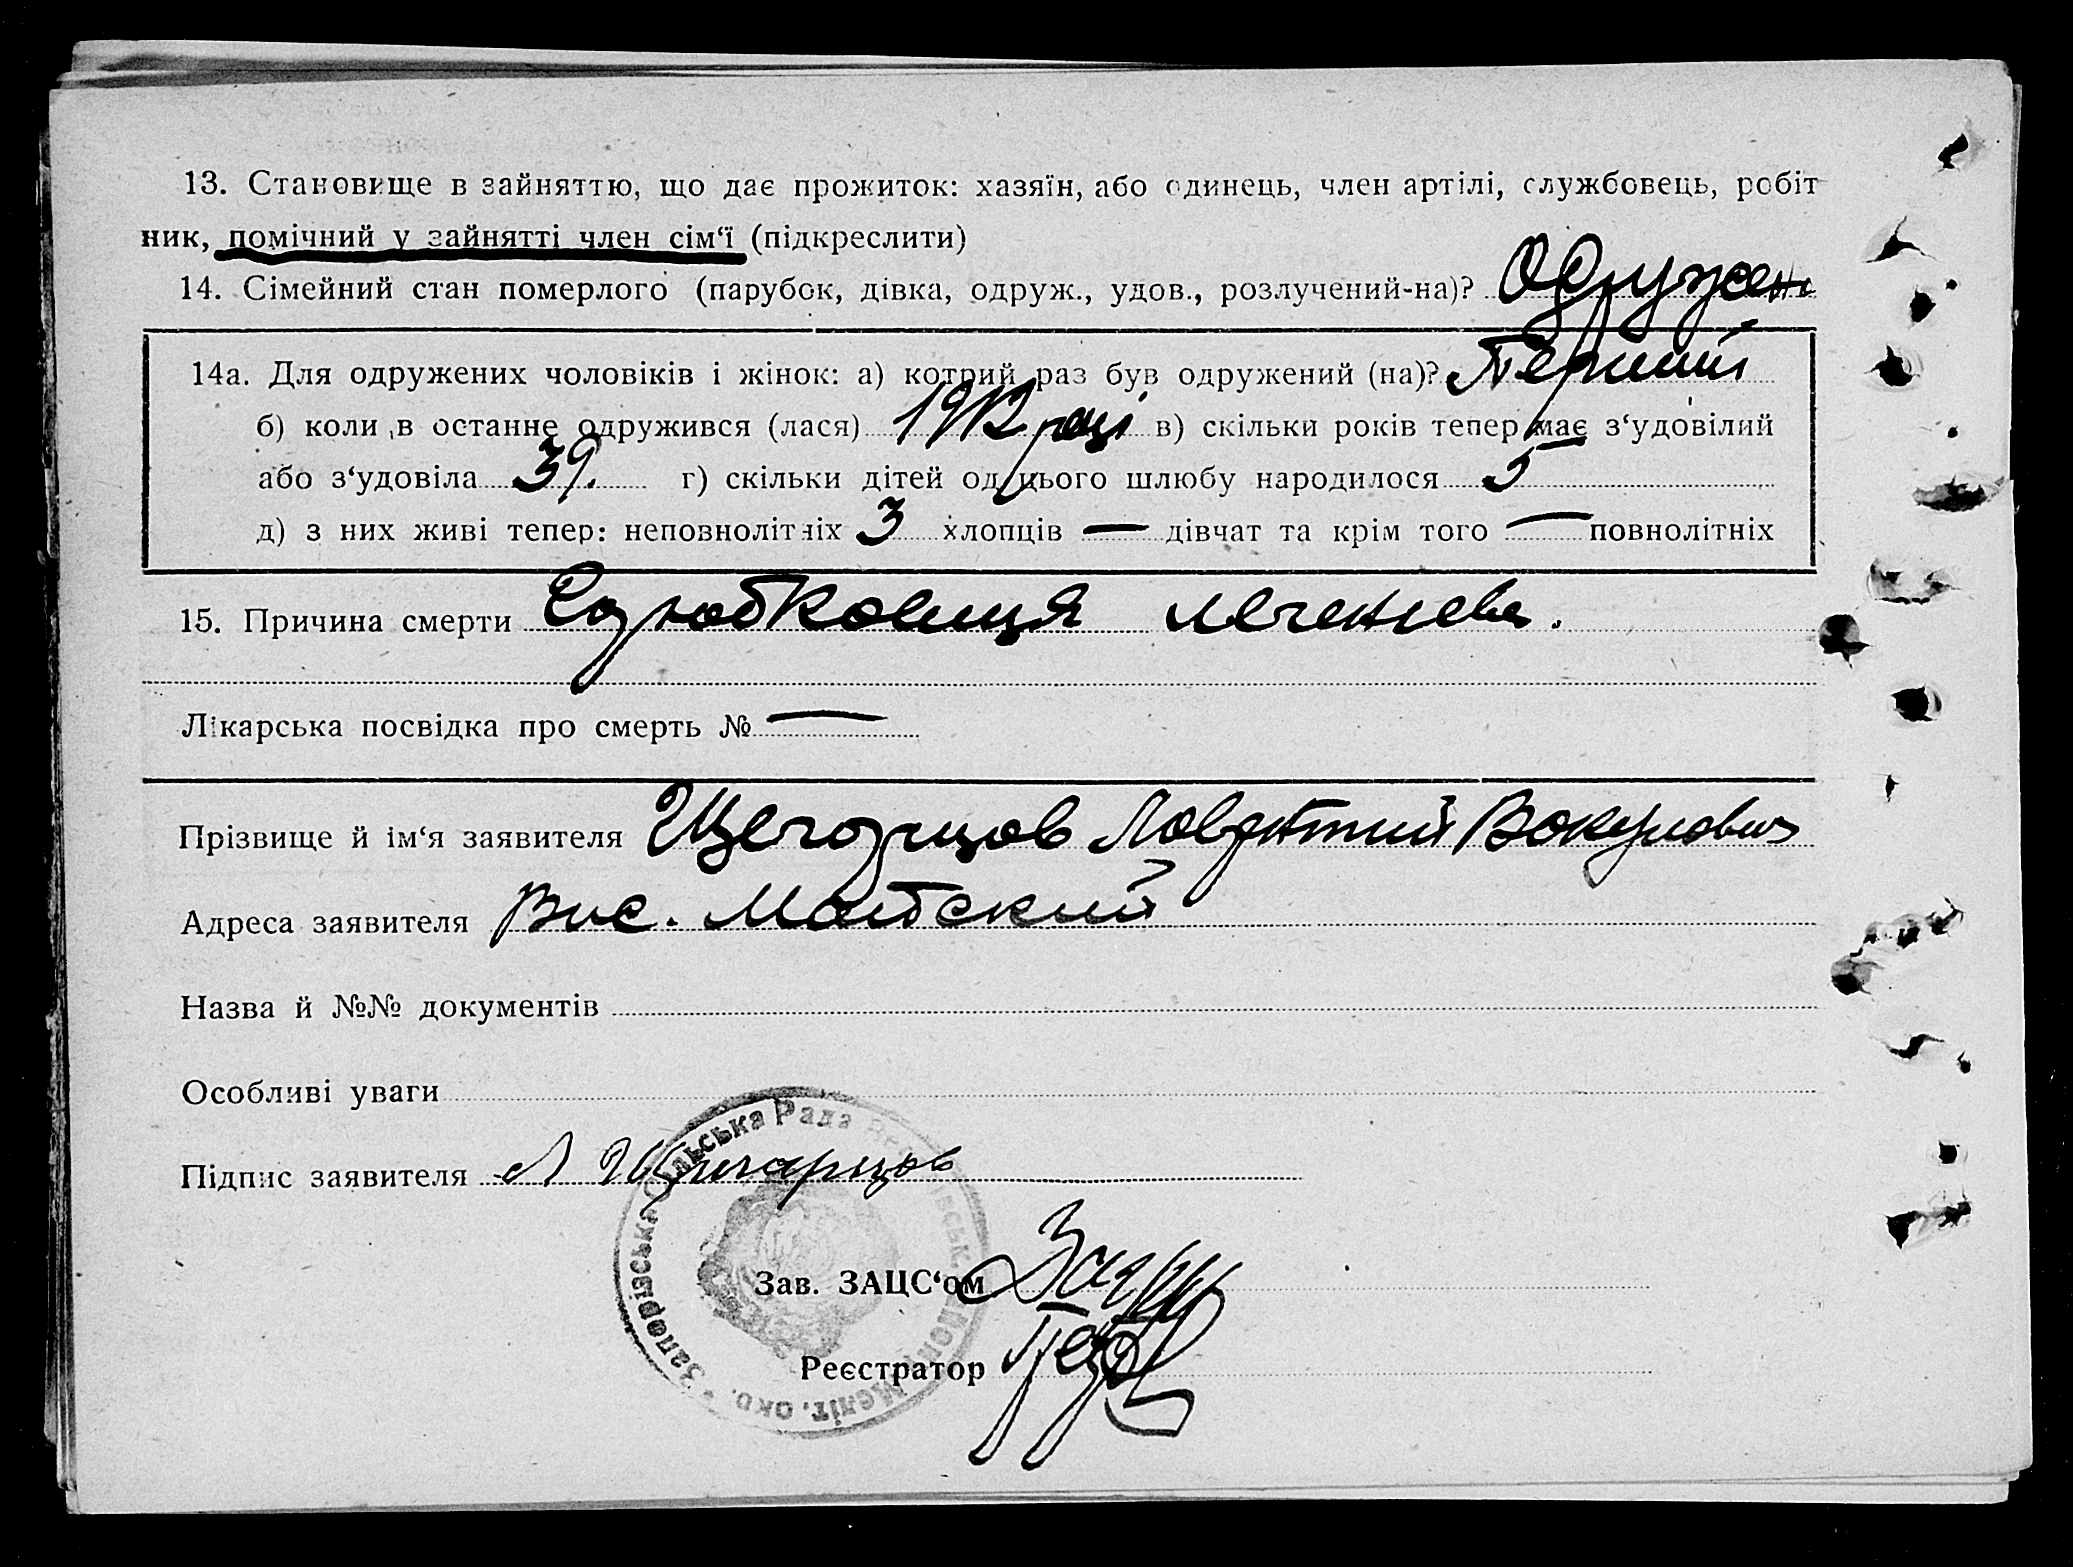 13. Становище в зайняттю, що дає прожиток: хазяїн, або одинець, член артілі, службовець, робіт
ник, помічний у зайнятті член сім‘ї (підкреслити)
14. Сімейний стан померлого (парубок, дівка, одруж., удов., розлучений-на)? Одружен
14а. Для одружених чоловіків і жінок: а) котрий раз був одружений (на)? Перший
б) коли в останнє одружився (лася) 1912 році в) скільки років тепер має з‘удовілий
або з‘удовіла 39. г) скільки дітей од цього шлюбу народилося 5
д) з них живі тепер: неповнолітніх 3 хлопців — дівчат та крім того — повнолітніх
15. Причина смерти
Лікарська посвідка про смерть № —
Прізвище й ім‘я заявителя
Адреса заявителя Вис.
Назва й №№ документів
Особливі уваги
Підпис заявителя
Зав. ЗАЦС‘ом
Реєстратор
Запорівська Сільська Рада
Меліт. окр.